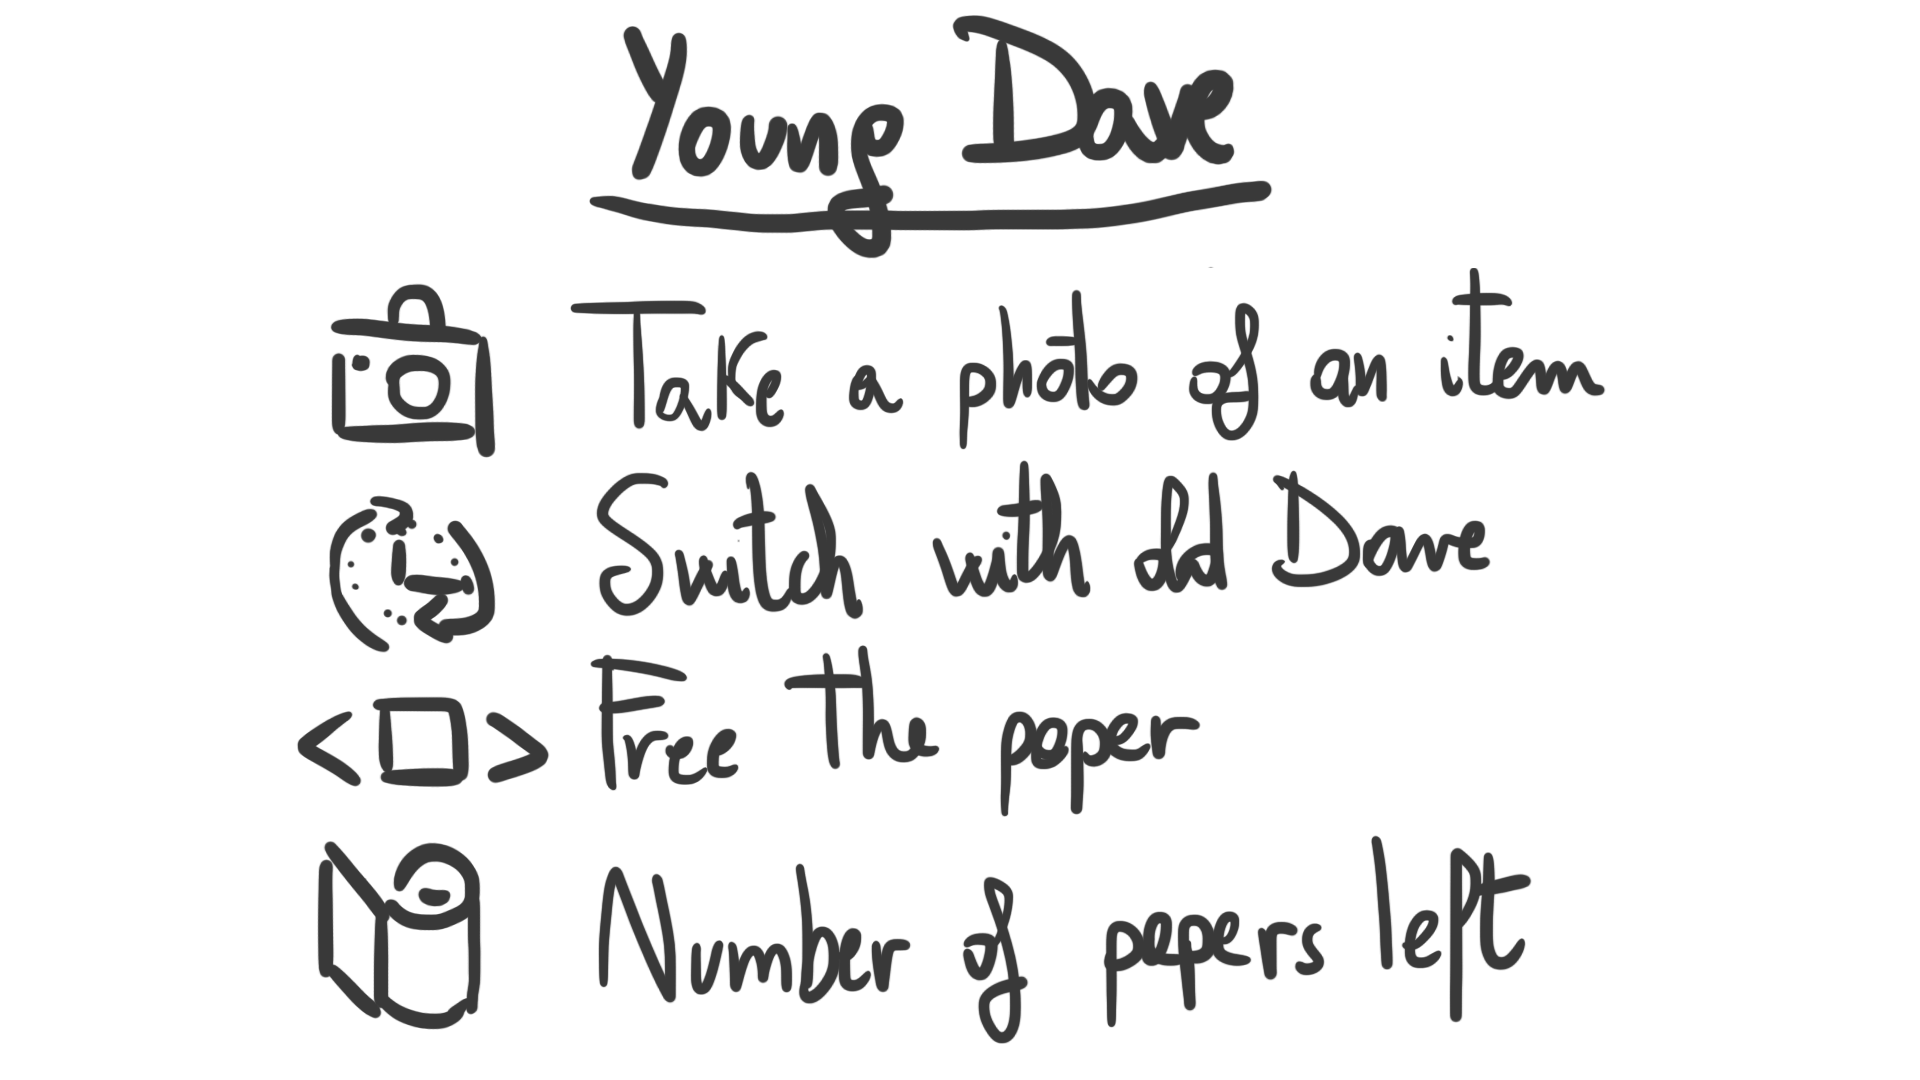 Young Dave
Take a photo of an item
Switch with old Dave
Free the paper
Number of papers left